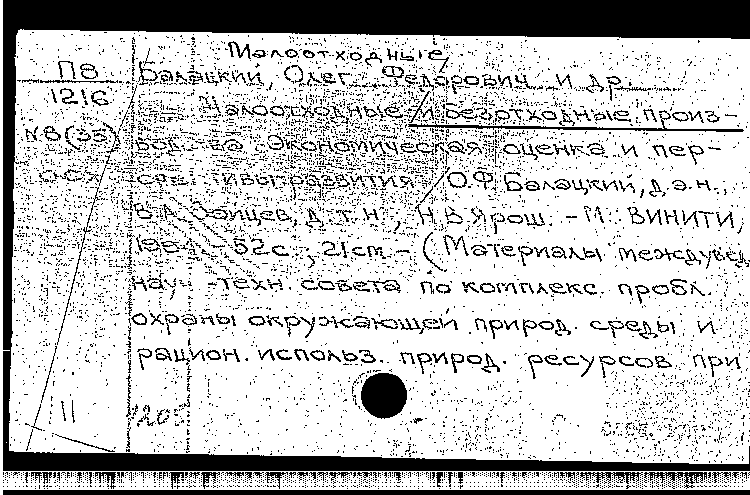 Малоотходные
П8 Балацкий, Олег Федорович и др.
1216
Малоотходные и безотходные произ-
N8(35) вод-ва. Экономическая оценка и пер-
развития О.Ф. Балацкий, д.э.н.,
В.А. Зайцев, д.т.н., Н.В. Ярош. - М.: ВИНИТИ,
52с.; 21см. - (Материалы междувед.
науч-техн. совета по комплекс. пробл.
охраны окружающей природ. среды и
рацион. использ. природ. ресурсов при
11